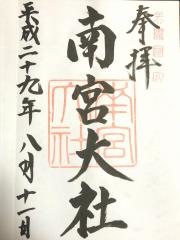 奉拝
南宮大社
平成二十九年八月十一日